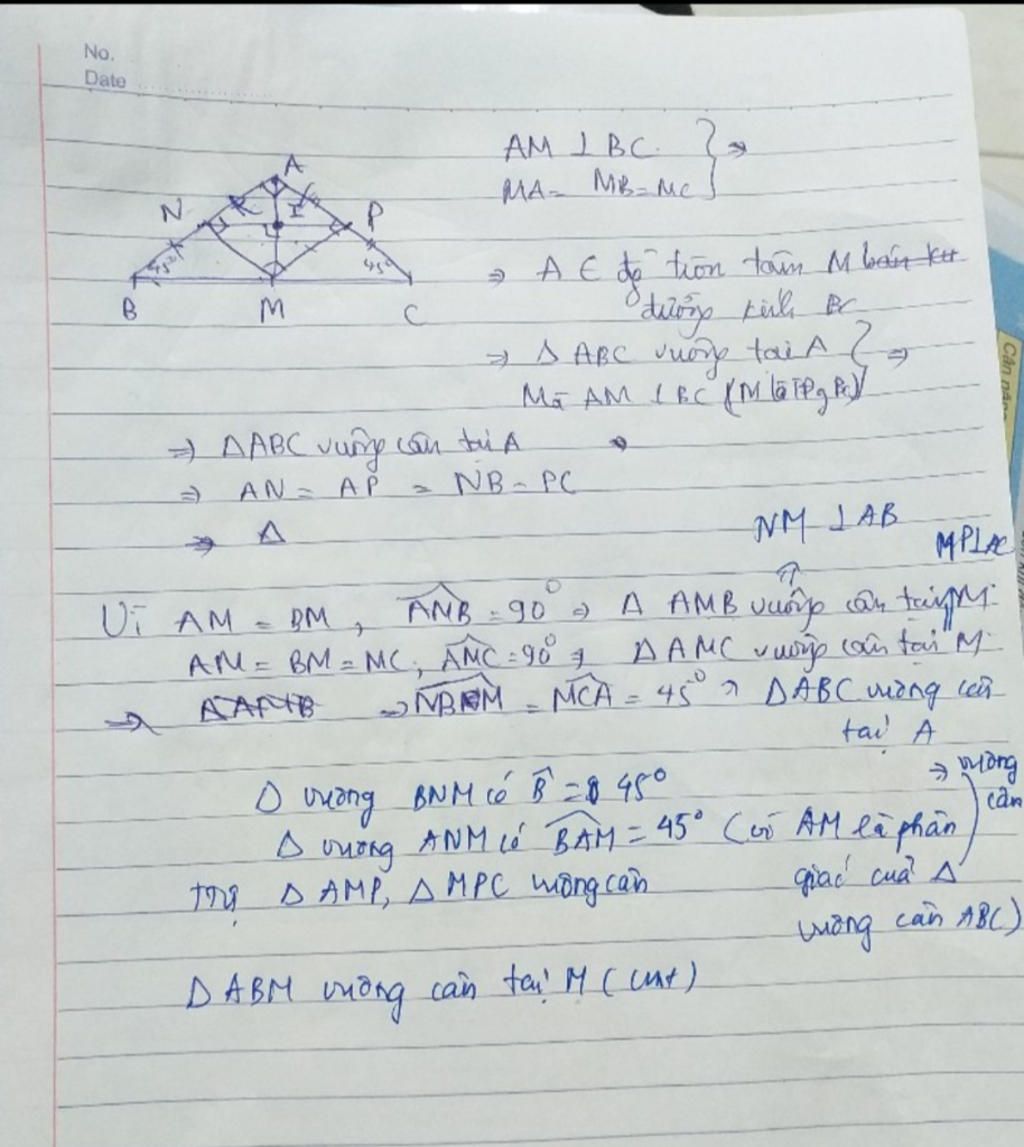 No.
Date
A
N
K
I
P
45°
45°
B
M
C
AM ⊥ BC
MA = MB = MC } ⇒
⇒ A ∈ đg tròn tâm M
đường kính BC
⇒ Δ ABC vuông tại A } ⇒
Mà AM ⊥ BC (M là TĐ BC)
⇒ ΔABC vuông cân tại A
⇒ AN = AP = NB = PC
⇒ Δ
NM ⊥ AB
MP⊥AC
⇑
Vì AM = BM, ANB = 90° ⇒ Δ AMB vuông cân tại M
AM = BM = MC, AMC = 90° ⇒ ΔAMC vuông cân tại M
⇒ NBM = MCA = 45° ⇒ ΔABC vuông cân
tại A
Δ vuông BNM có B = 45°
⇒ vuông
cân
Δ vuông ANM có BAM = 45° (vì AM là phân
giác của Δ
vuông cân ABC)
TTự Δ AMP, Δ MPC vuông cân
Δ ABM vuông cân tại M (cmt)
Cân nặng